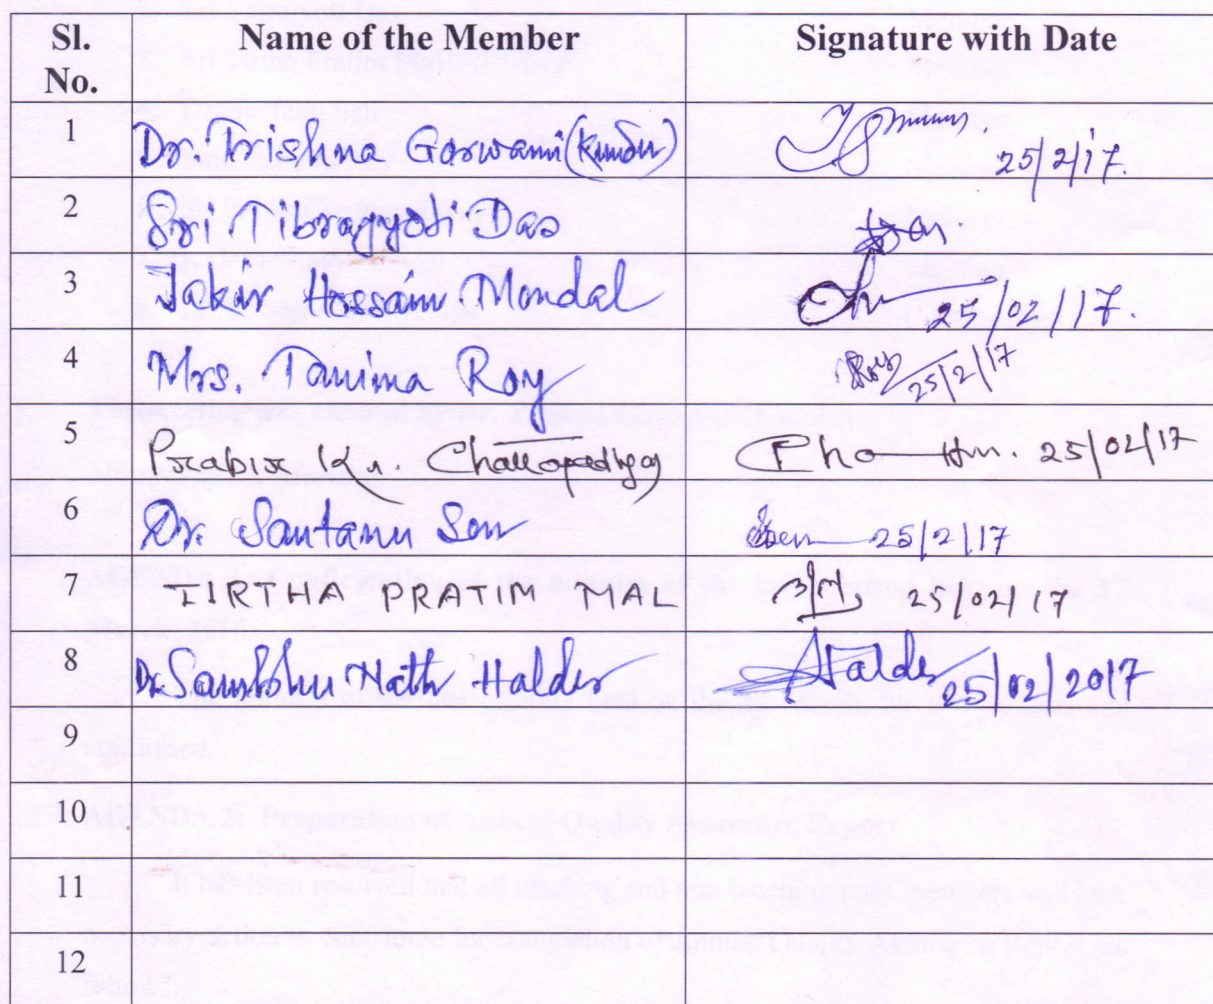 Sl. No. Name of the Member Signature with Date
1 Dr. Trishna Goswami (Kundu) 25/2/17.
2 Sri Tibrajyoti Das Das.
3 Jakir Hossain Mondal 25/02/17.
4 Mrs. Tanima Roy Roy 25/2/17
5 Prabir Kr. Chattopadhyay 25/02/17
6 Dr. Santanu Sen Sen 25/2/17
7 TIRTHA PRATIM MAL 25/02/17
8 Dr. Sambhu Nath Halder Halder 25/02/2017
9
10
11
12